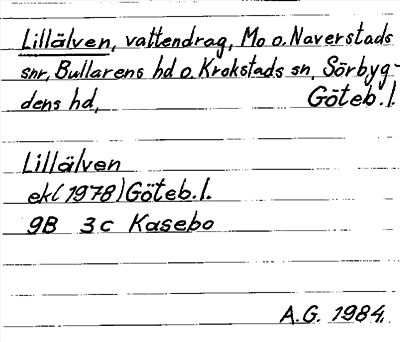 Lillälven, vattendrag, Mo o. Naverstads
snr, Bullarens hd o. Krokstads sn, Sörbyg-
dens hd, Göteb. l.
Lillälven
ek (1978) Göteb. l.
9B 3c Kasebo
A.G. 1984.